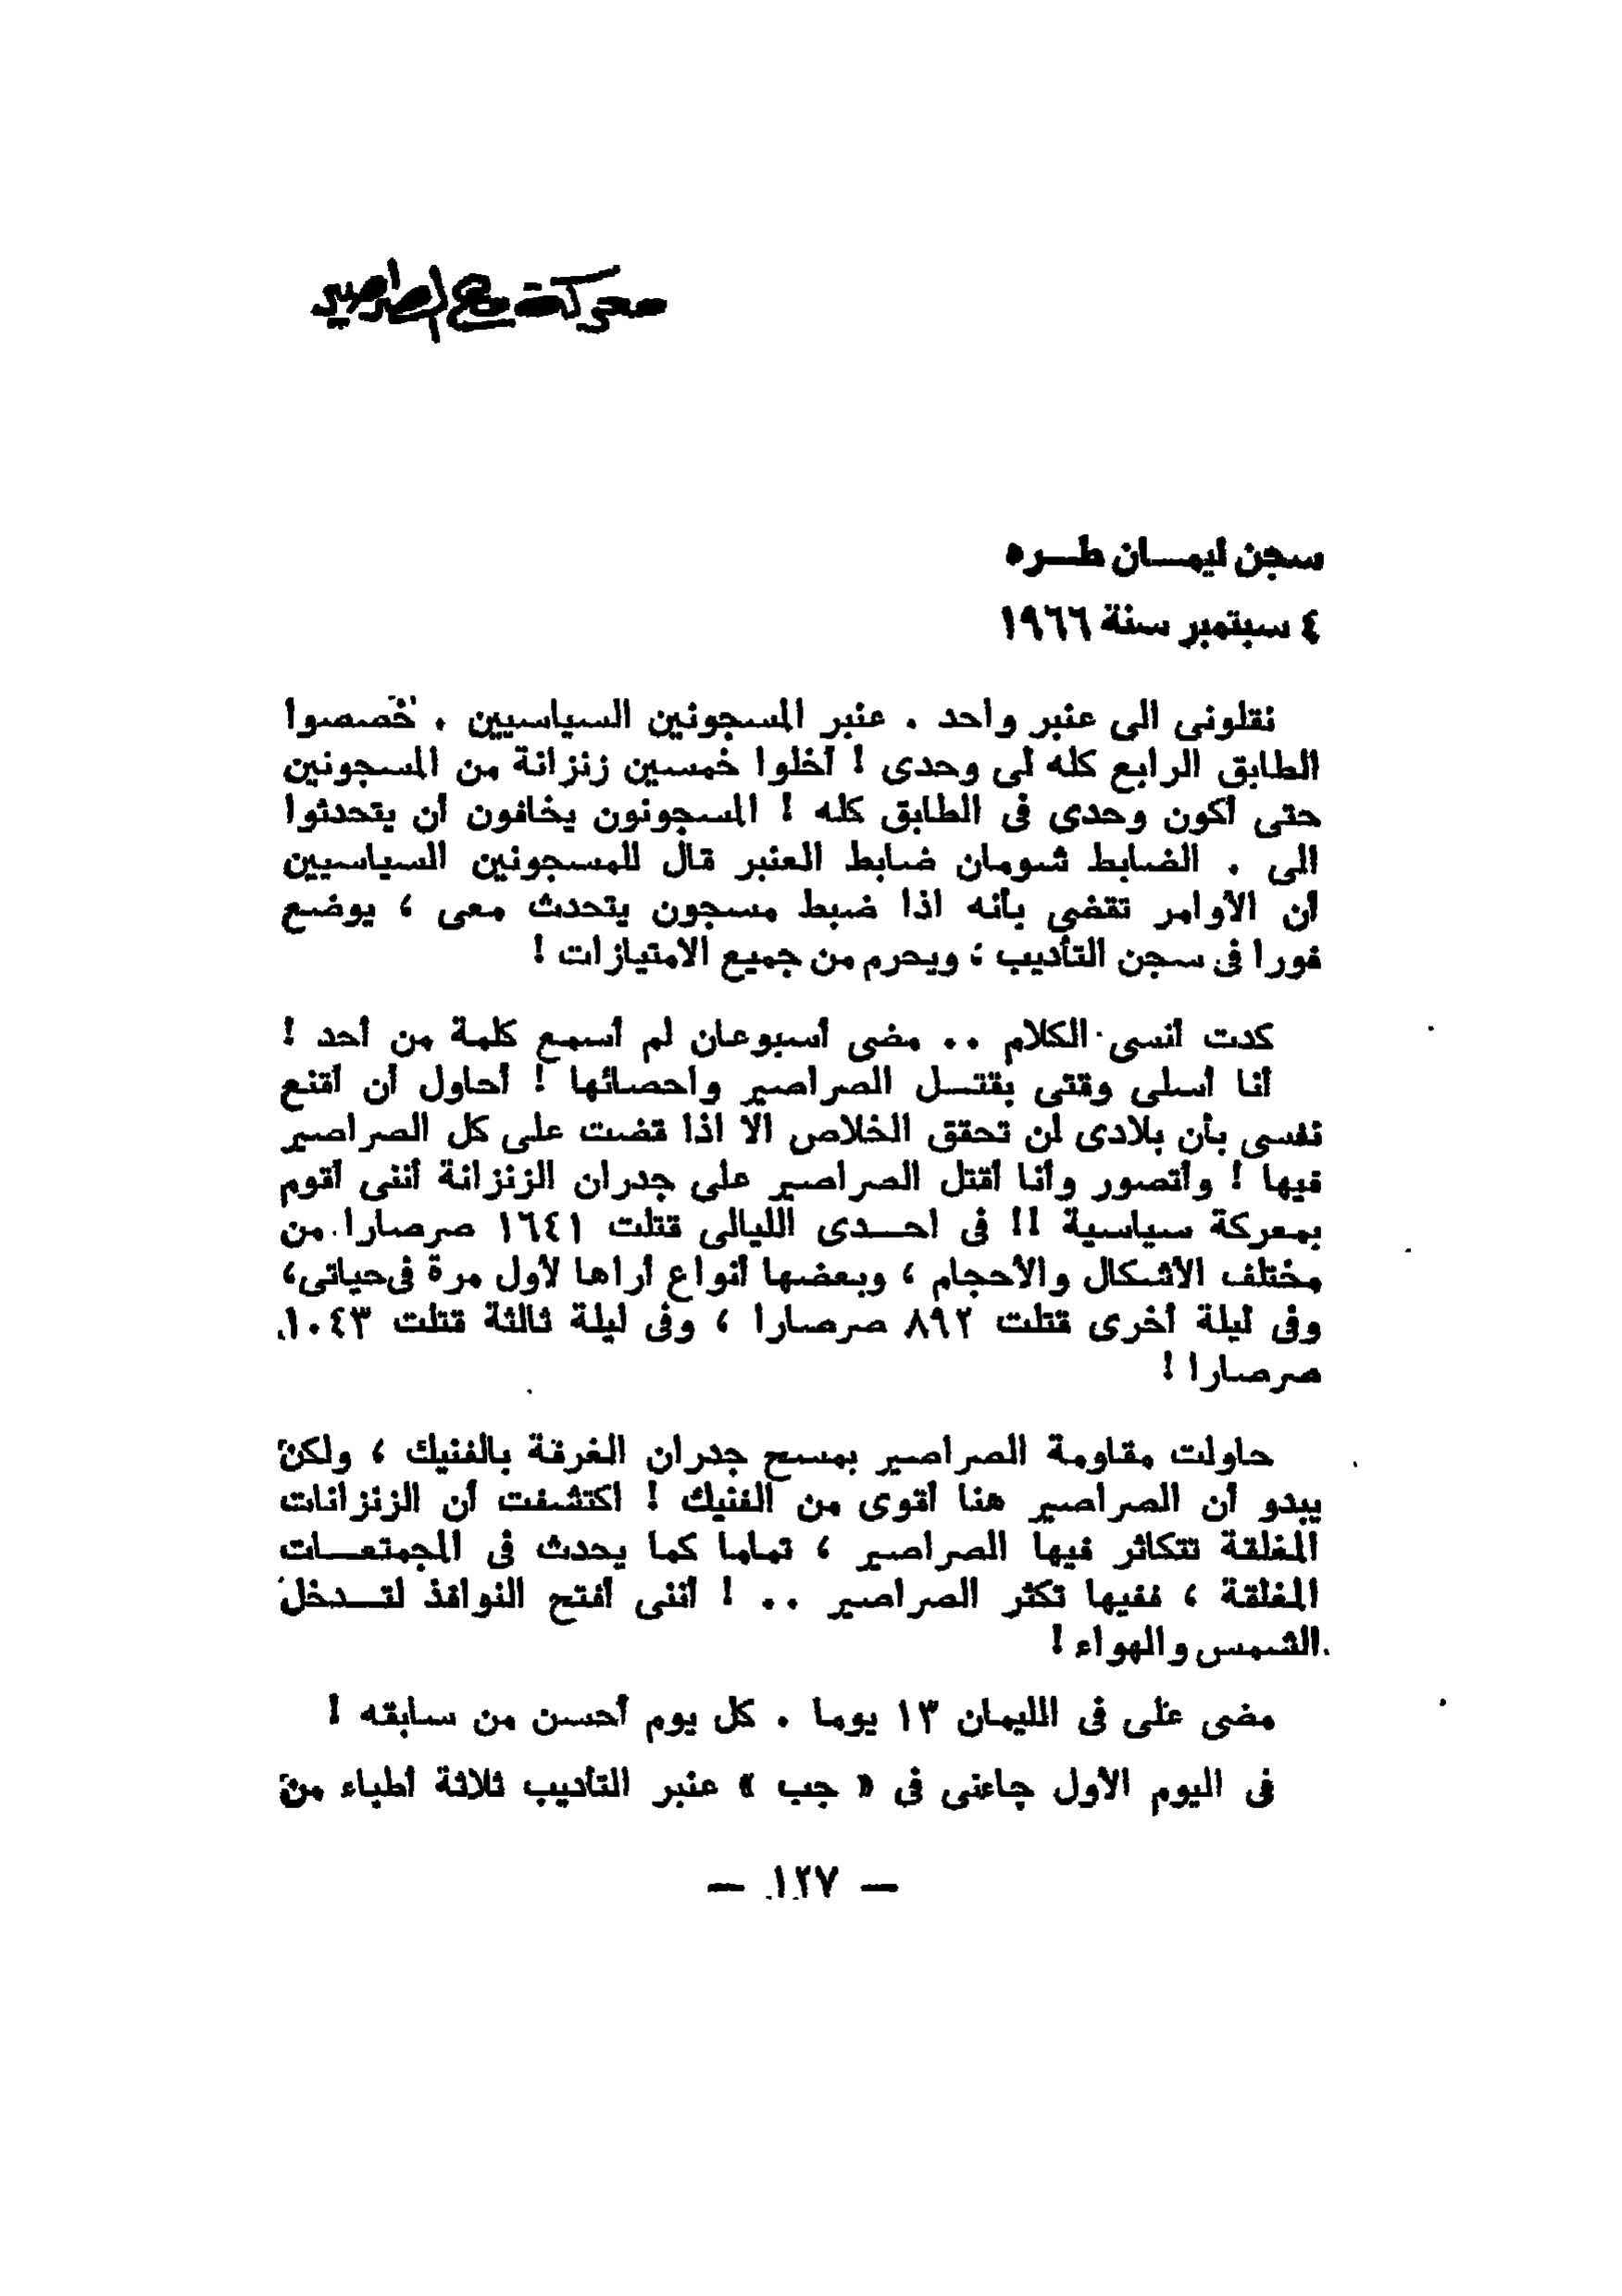 معركة مع الصراصير
سجن ليمـــان طـــره
٤ سبتمبر سنة ١٩٦٦
نقلونى الى عنبر واحد . عنبر المسجونين السياسيين . خصصوا
الطابق الرابع كله لى وحدى ! أخلوا خمسين زنزانة من المسجونين
حتى أكون وحدى فى الطابق كله ! المسجونون يخافون أن يتحدثوا
الى . الضابط شومان ضابط العنبر قال للمسجونين السياسيين
أن الأوامر تقضى بأنه اذا ضبط مسجون يتحدث معى ، يوضع
فورا فى سجن التأديب ؛ ويحرم من جميع الامتيازات !
كدت أنسى الكلام .. مضى أسبوعان لم أسمع كلمة من أحد !
أنا أسلى وقتى بقتـــل الصراصير واحصائها ! أحاول أن أقنع
نفسى بأن بلادى لن تحقق الخلاص الا اذا قضت على كل الصراصير
فيها ! وأتصور وأنا أقتل الصراصير على جدران الزنزانة أننى أقوم
بمعركة سياسية !! فى احـــدى الليالى قتلت ١٦٤١ صرصارا من
مختلف الأشكال والأحجام ، وبعضها أنواع أراها لأول مرة فى حياتى،
وفى ليلة أخرى قتلت ٨٩٢ صرصارا ، وفى ليلة ثالثة قتلت ١٠٤٣
صرصارا !
حاولت مقاومة الصراصير بمسح جدران الغرفة بالفنيك ، ولكن
يبدو أن الصراصير هنا أقوى من الفنيك ! اكتشفت أن الزنزانات
المغلقة تتكاثر فيها الصراصير ، تماما كما يحدث فى المجتمعـــات
المغلقة ، ففيها تكثر الصراصير .. ! أننى أفتح النوافذ لتـــدخل
الشمس والهواء !
مضى على فى الليمان ١٣ يوما . كل يوم أحسن من سابقه !
فى اليوم الأول جاءنى فى « جب » عنبر التأديب ثلاثة أطباء من
— ١٢٧ —